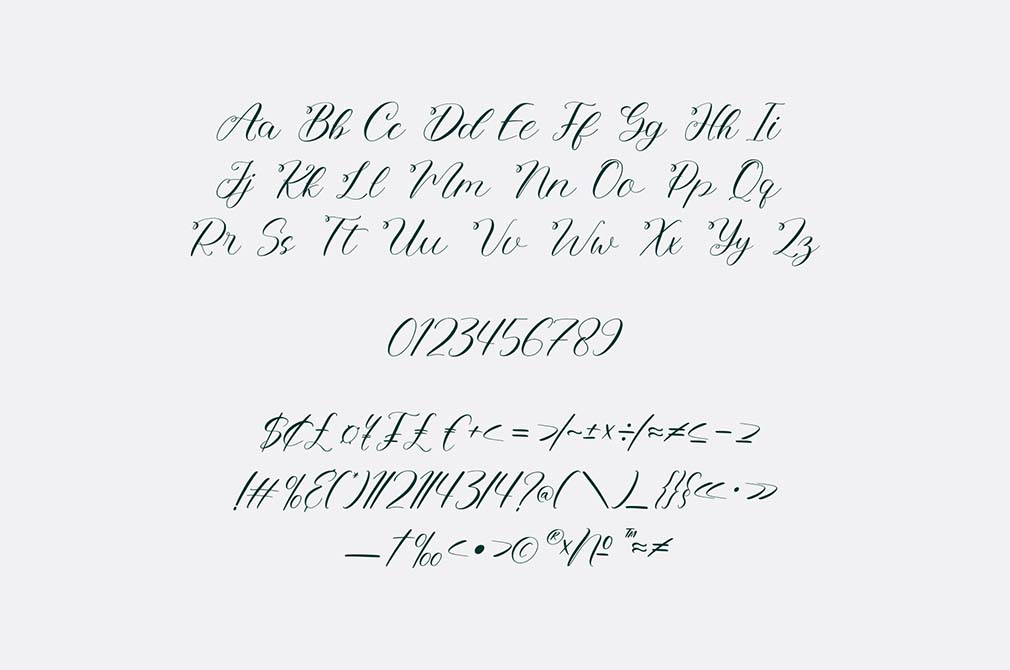 Aa Bb Cc Dd Ee Ff Gg Hh Ii
Jj Kk Ll Mm Nn Oo Pp Qq
Rr Ss Tt Uu Vv Ww Xx Yy Zz
0123456789
$¢£¤¥₣₤€+<=>/~±×÷/≈≠≤−≥
!#%&(*)1/21/43/4?@(\)_{}{«·»
—†‰‹•›©®×№™≈≠